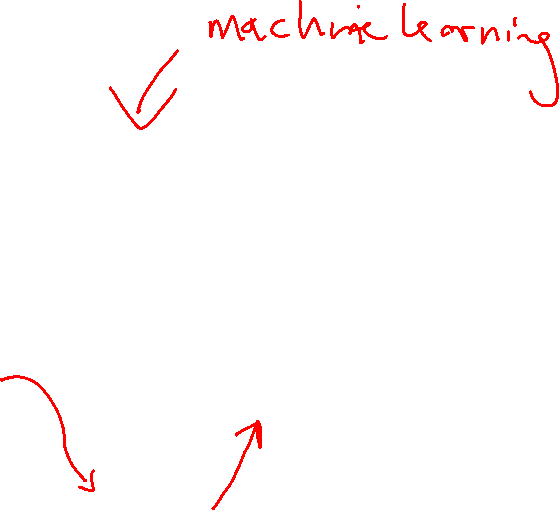 machine learning